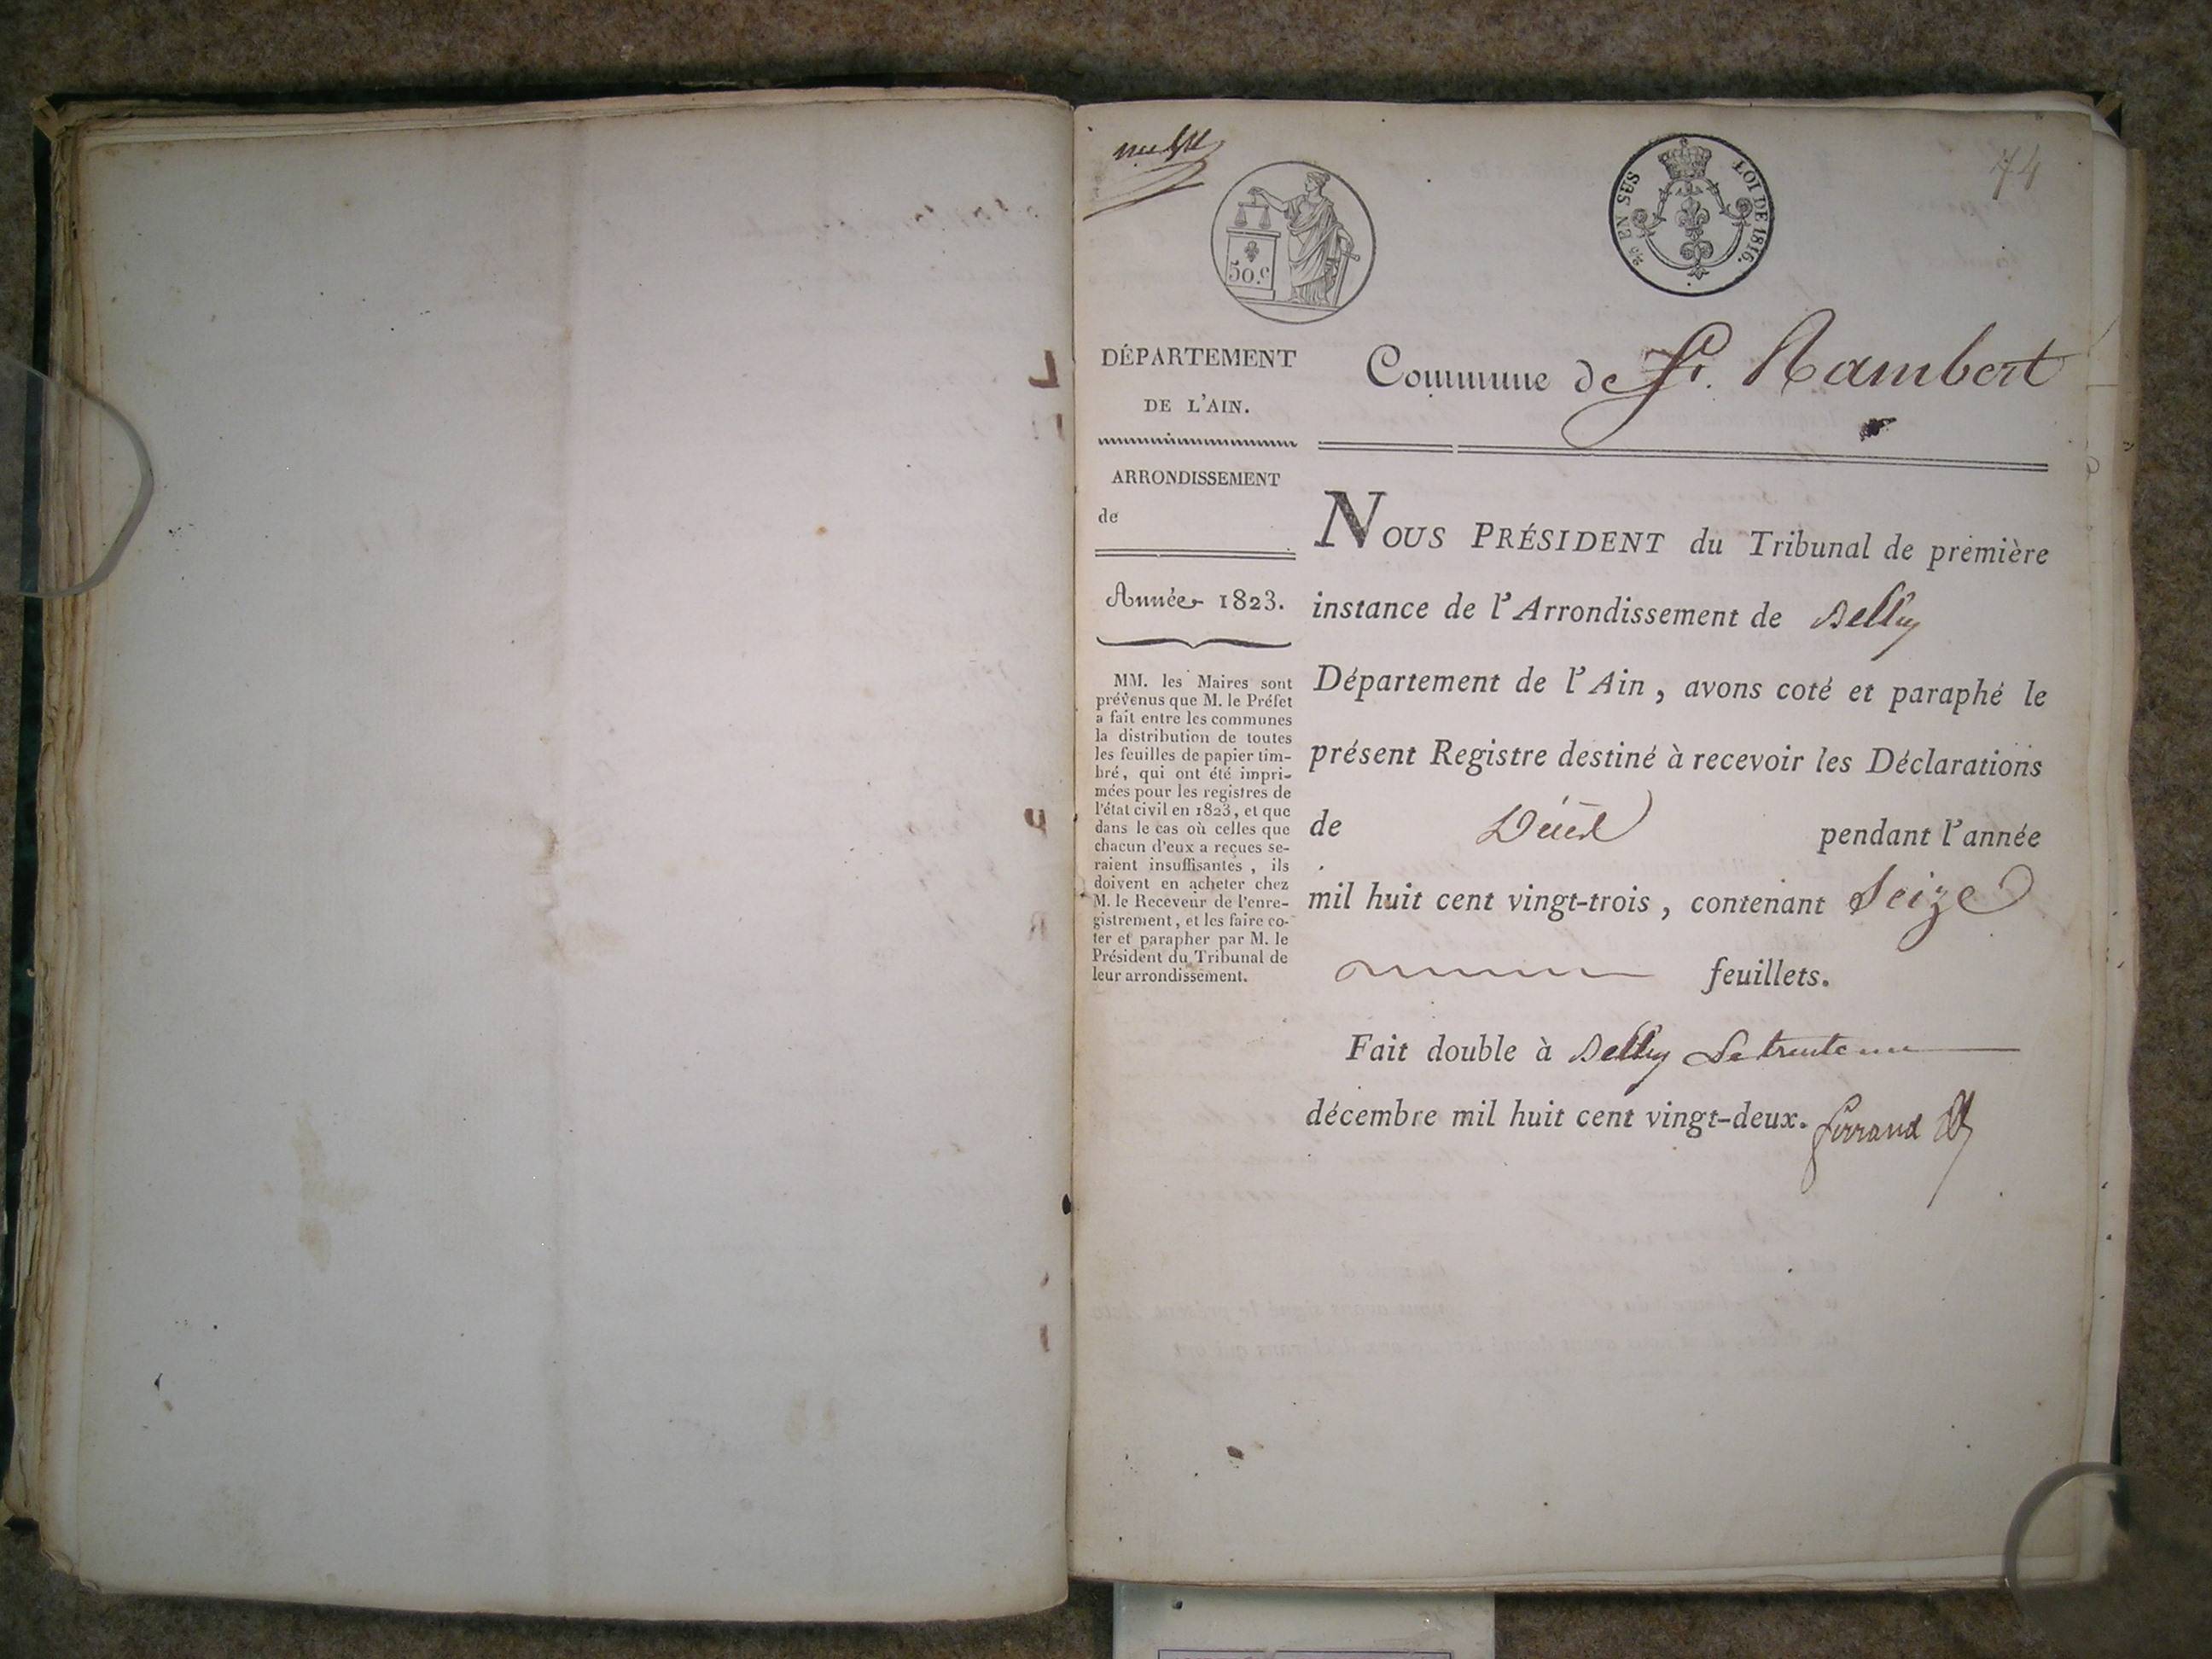 74
50.c
EN SUS
LOI DE 1816.
DÉPARTEMENT
DE L'AIN.
ARRONDISSEMENT
de
Année 1823.
MM. les Maires sont
prévenus que M. le Préfet
a fait entre les communes
la distribution de toutes
les feuilles de papier tim-
bré, qui ont été impri-
mées pour les registres de
l'état civil en 1823, et que
dans le cas où celles que
chacun d'eux a reçues se-
raient insuffisantes, ils
doivent en acheter chez
M. le Receveur de l'enre-
gistrement, et les faire co-
ter et parapher par M. le
Président du Tribunal de
leur arrondissement.
Commune de St. Rambert
NOUS PRÉSIDENT du Tribunal de première
instance de l'Arrondissement de Belley
Département de l'Ain, avons coté et paraphé le
présent Registre destiné à recevoir les Déclarations
de Décès pendant l'année
mil huit cent vingt-trois, contenant Seize
feuillets.
Fait double à Belley Le trente un
décembre mil huit cent vingt-deux. ferrand